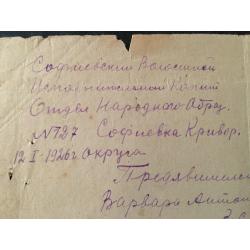 Софиевский Волосной
Исполнительный Комит
Отдел Народного Образ.
№727 Софиевка Кривор.
12 I-1926 г Округа
Предявши
Варвара Антон